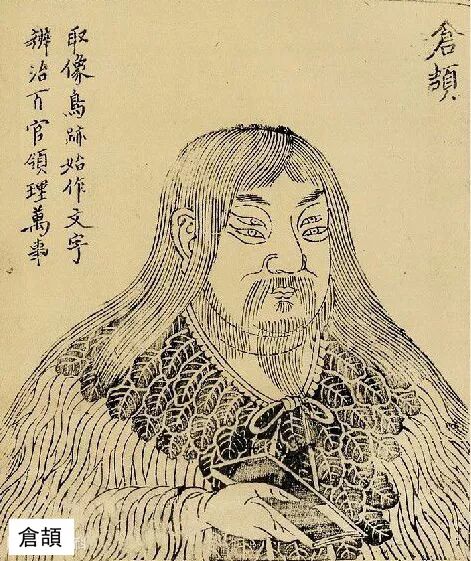 倉頡
取像鳥跡始作文字
辨治百官領理萬事
倉頡